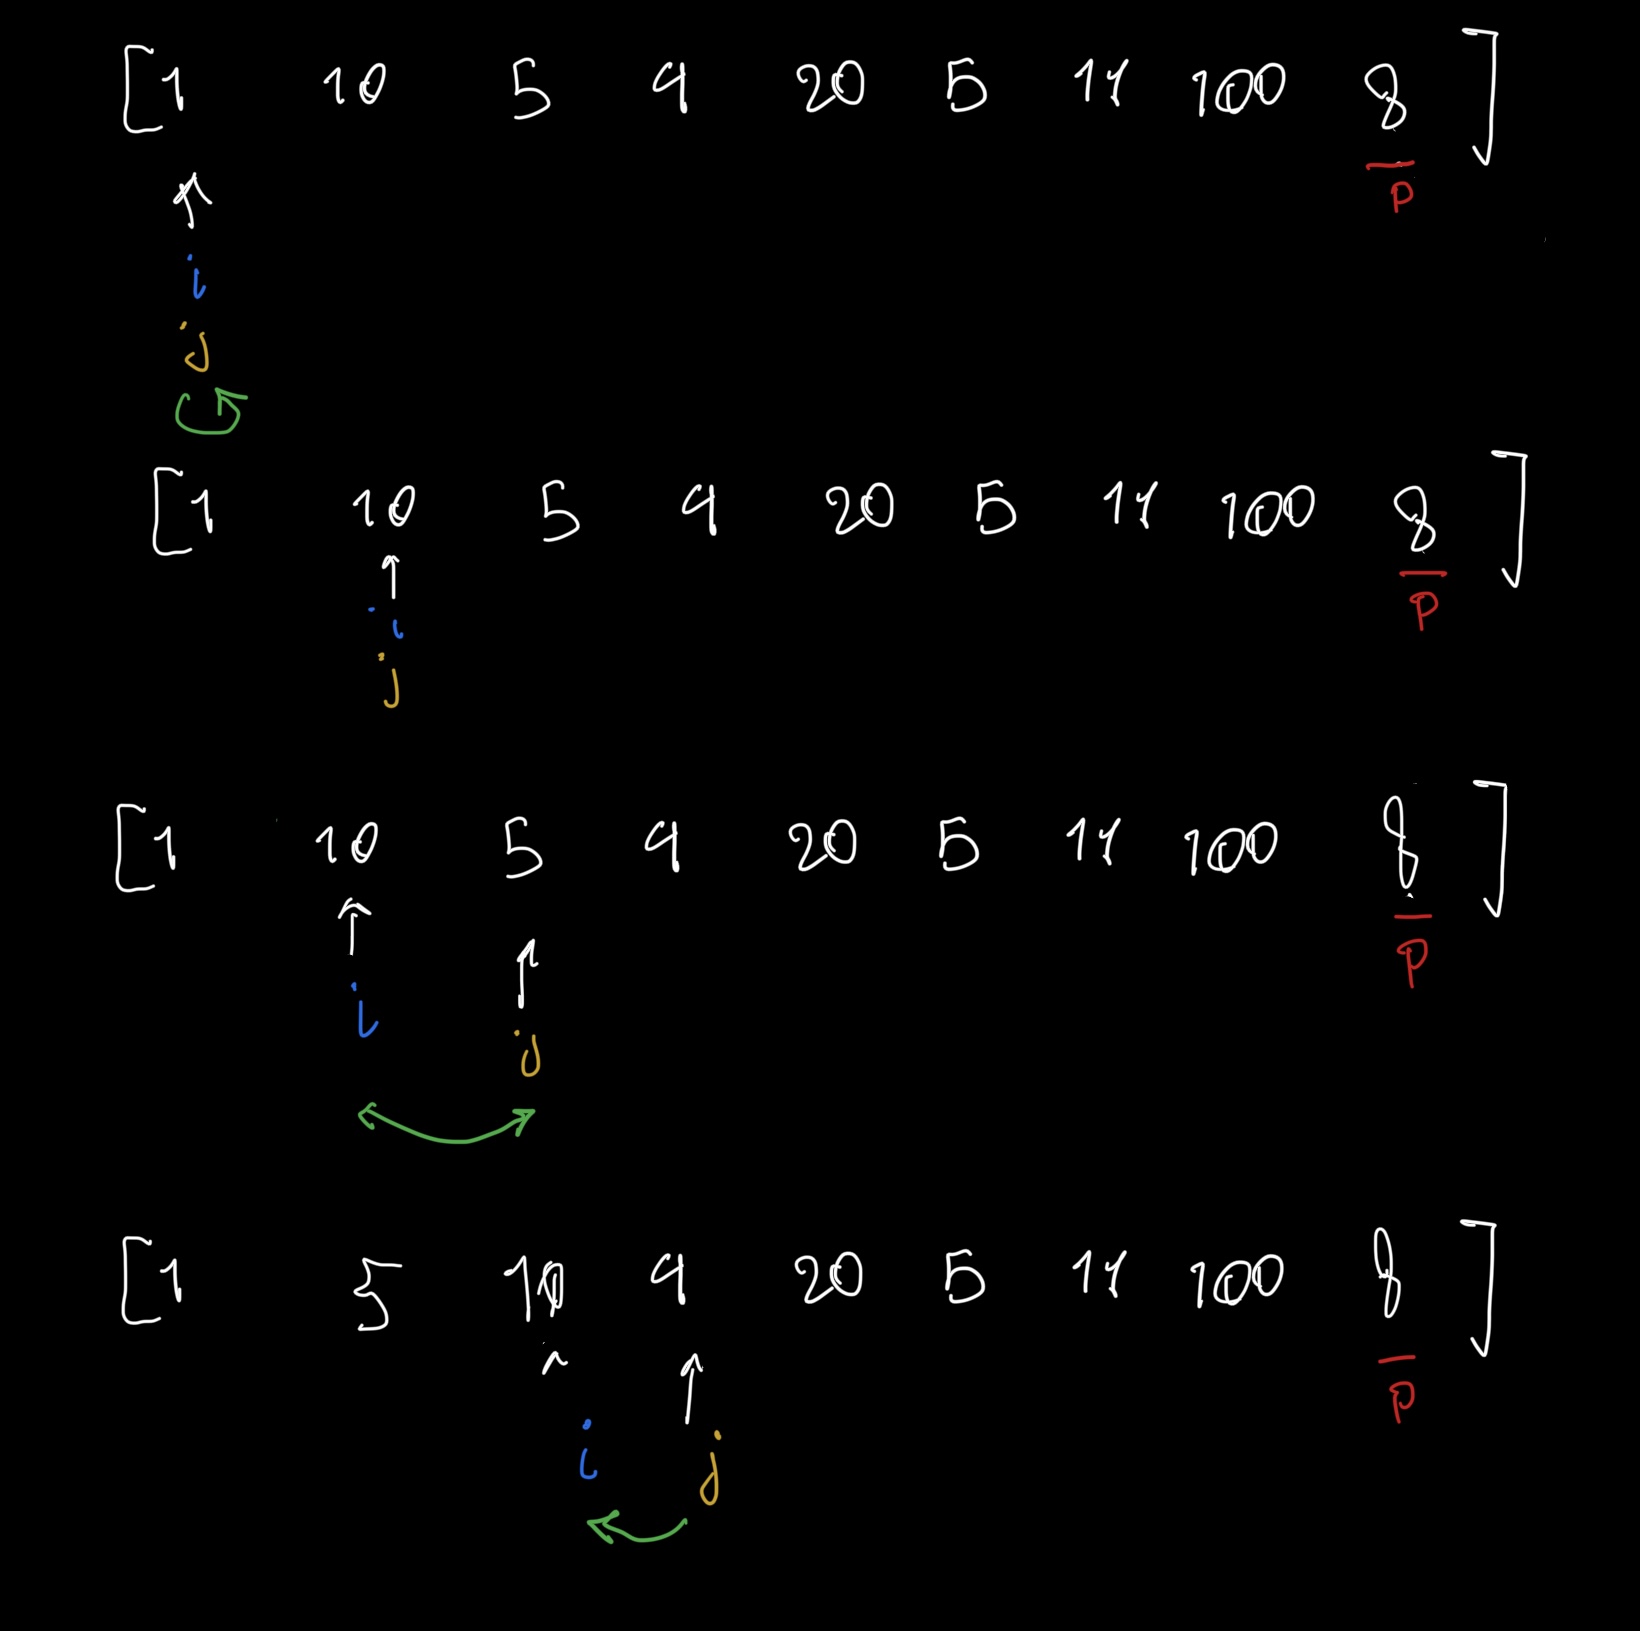 [1 10 5 4 20 5 11 100 8]
p
i
j
[1 10 5 4 20 5 11 100 8]
p
i
j
[1 10 5 4 20 5 11 100 8]
p
i
j
[1 5 10 4 20 5 11 100 8]
p
i j